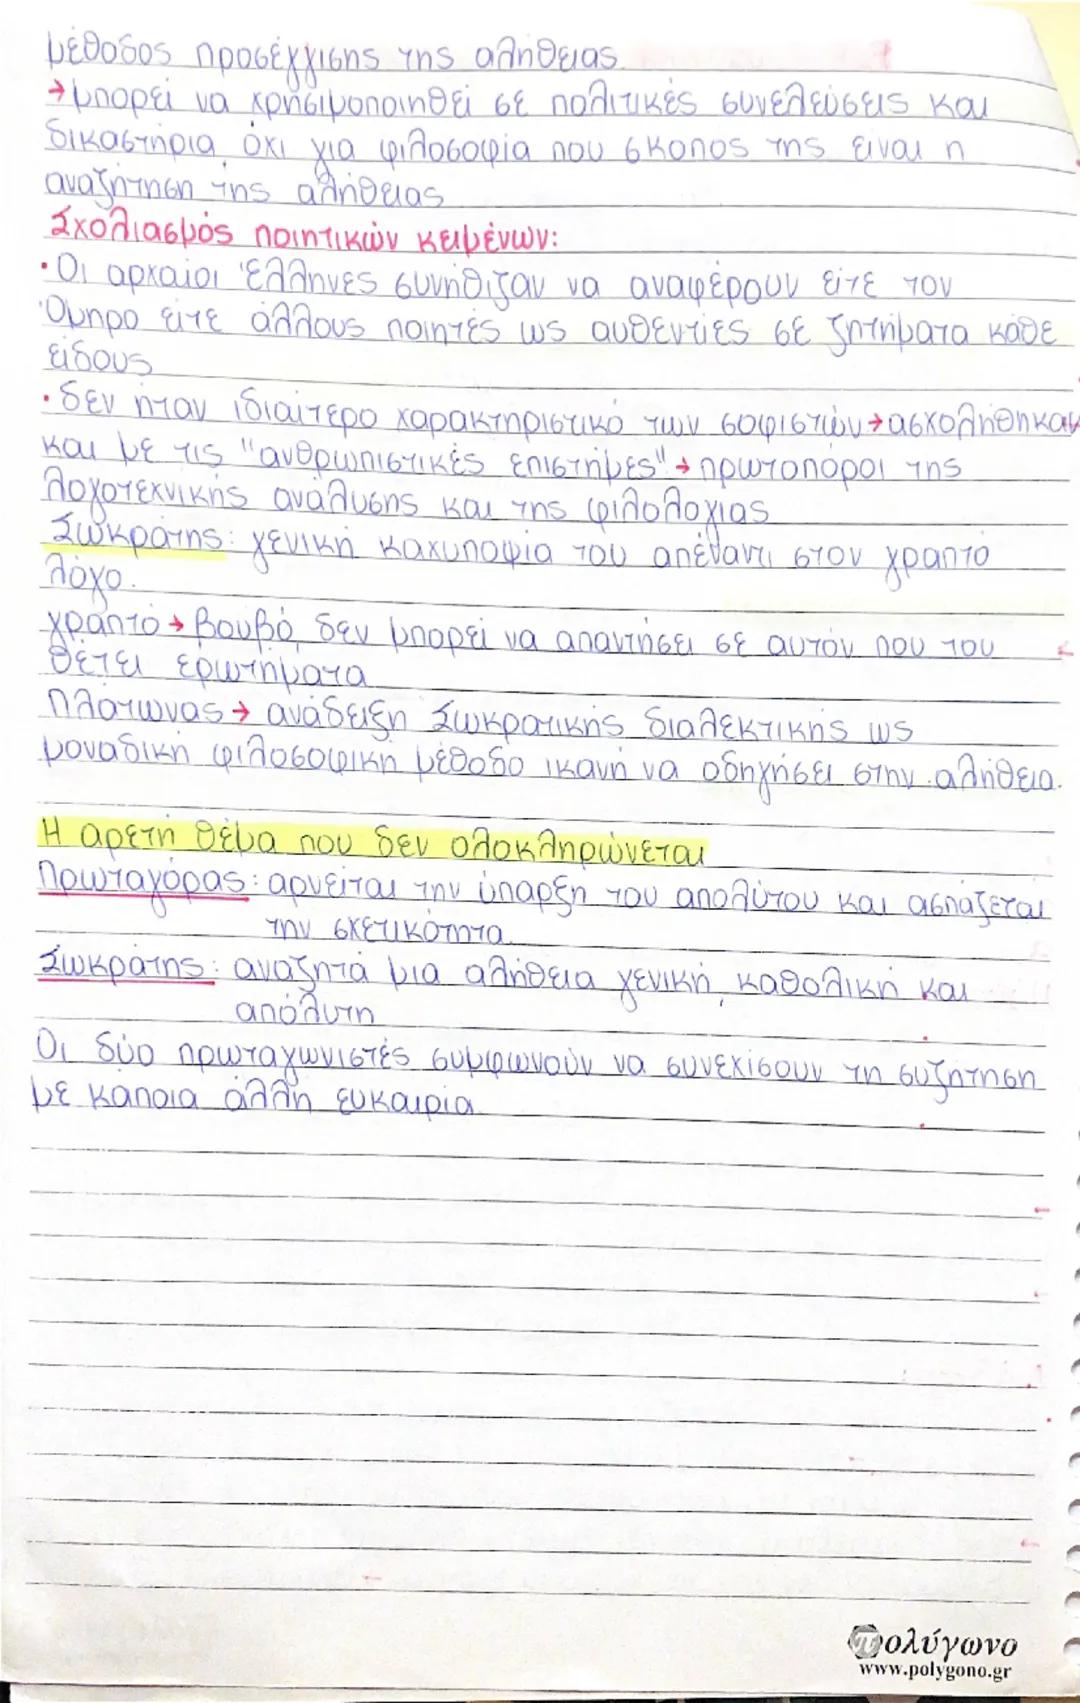 μέθοδος προσέγγισης της αλήθειας.
→ μπορεί να χρησιμοποιηθεί σε πολιτικές συνελεύσεις και
δικαστήρια, όχι για φιλοσοφία που σκοπός της είναι η
αναζήτηση της αλήθειας
Σχολιασμός ποιητικών κειμένων:
• Οι αρχαίοι Έλληνες συνήθιζαν να αναφέρουν είτε τον
Όμηρο είτε άλλους ποιητές ως αυθεντίες σε ζητήματα κάθε
είδους
• δεν ήταν ιδιαίτερο χαρακτηριστικό των σοφιστών → ασχολήθηκαν
και με τις "ανθρωπιστικές επιστήμες" → πρωτοπόροι της
λογοτεχνικής ανάλυσης και της φιλολογίας
Σωκράτης: γενική καχυποψία του απέναντι στον γραπτό
λόγο.
γραπτό → βουβό, δεν μπορεί να απαντήσει σε αυτόν που του
θέτει ερωτήματα
Πλάτωνας → ανάδειξη Σωκρατικής διαλεκτικής ως
μοναδική φιλοσοφική μέθοδο ικανή να οδηγήσει στην αλήθεια.
Η αρετή θέμα που δεν ολοκληρώνεται
Πρωταγόρας: αρνείται την ύπαρξη του απολύτου και ασπάζεται
την σχετικότητα.
Σωκράτης: αναζητά μια αλήθεια γενική, καθολική και
απόλυτη
Οι δύο πρωταγωνιστές συμφωνούν να συνεχίσουν τη συζήτηση
με κάποια άλλη ευκαιρία
πολύγωνο
www.polygono.gr